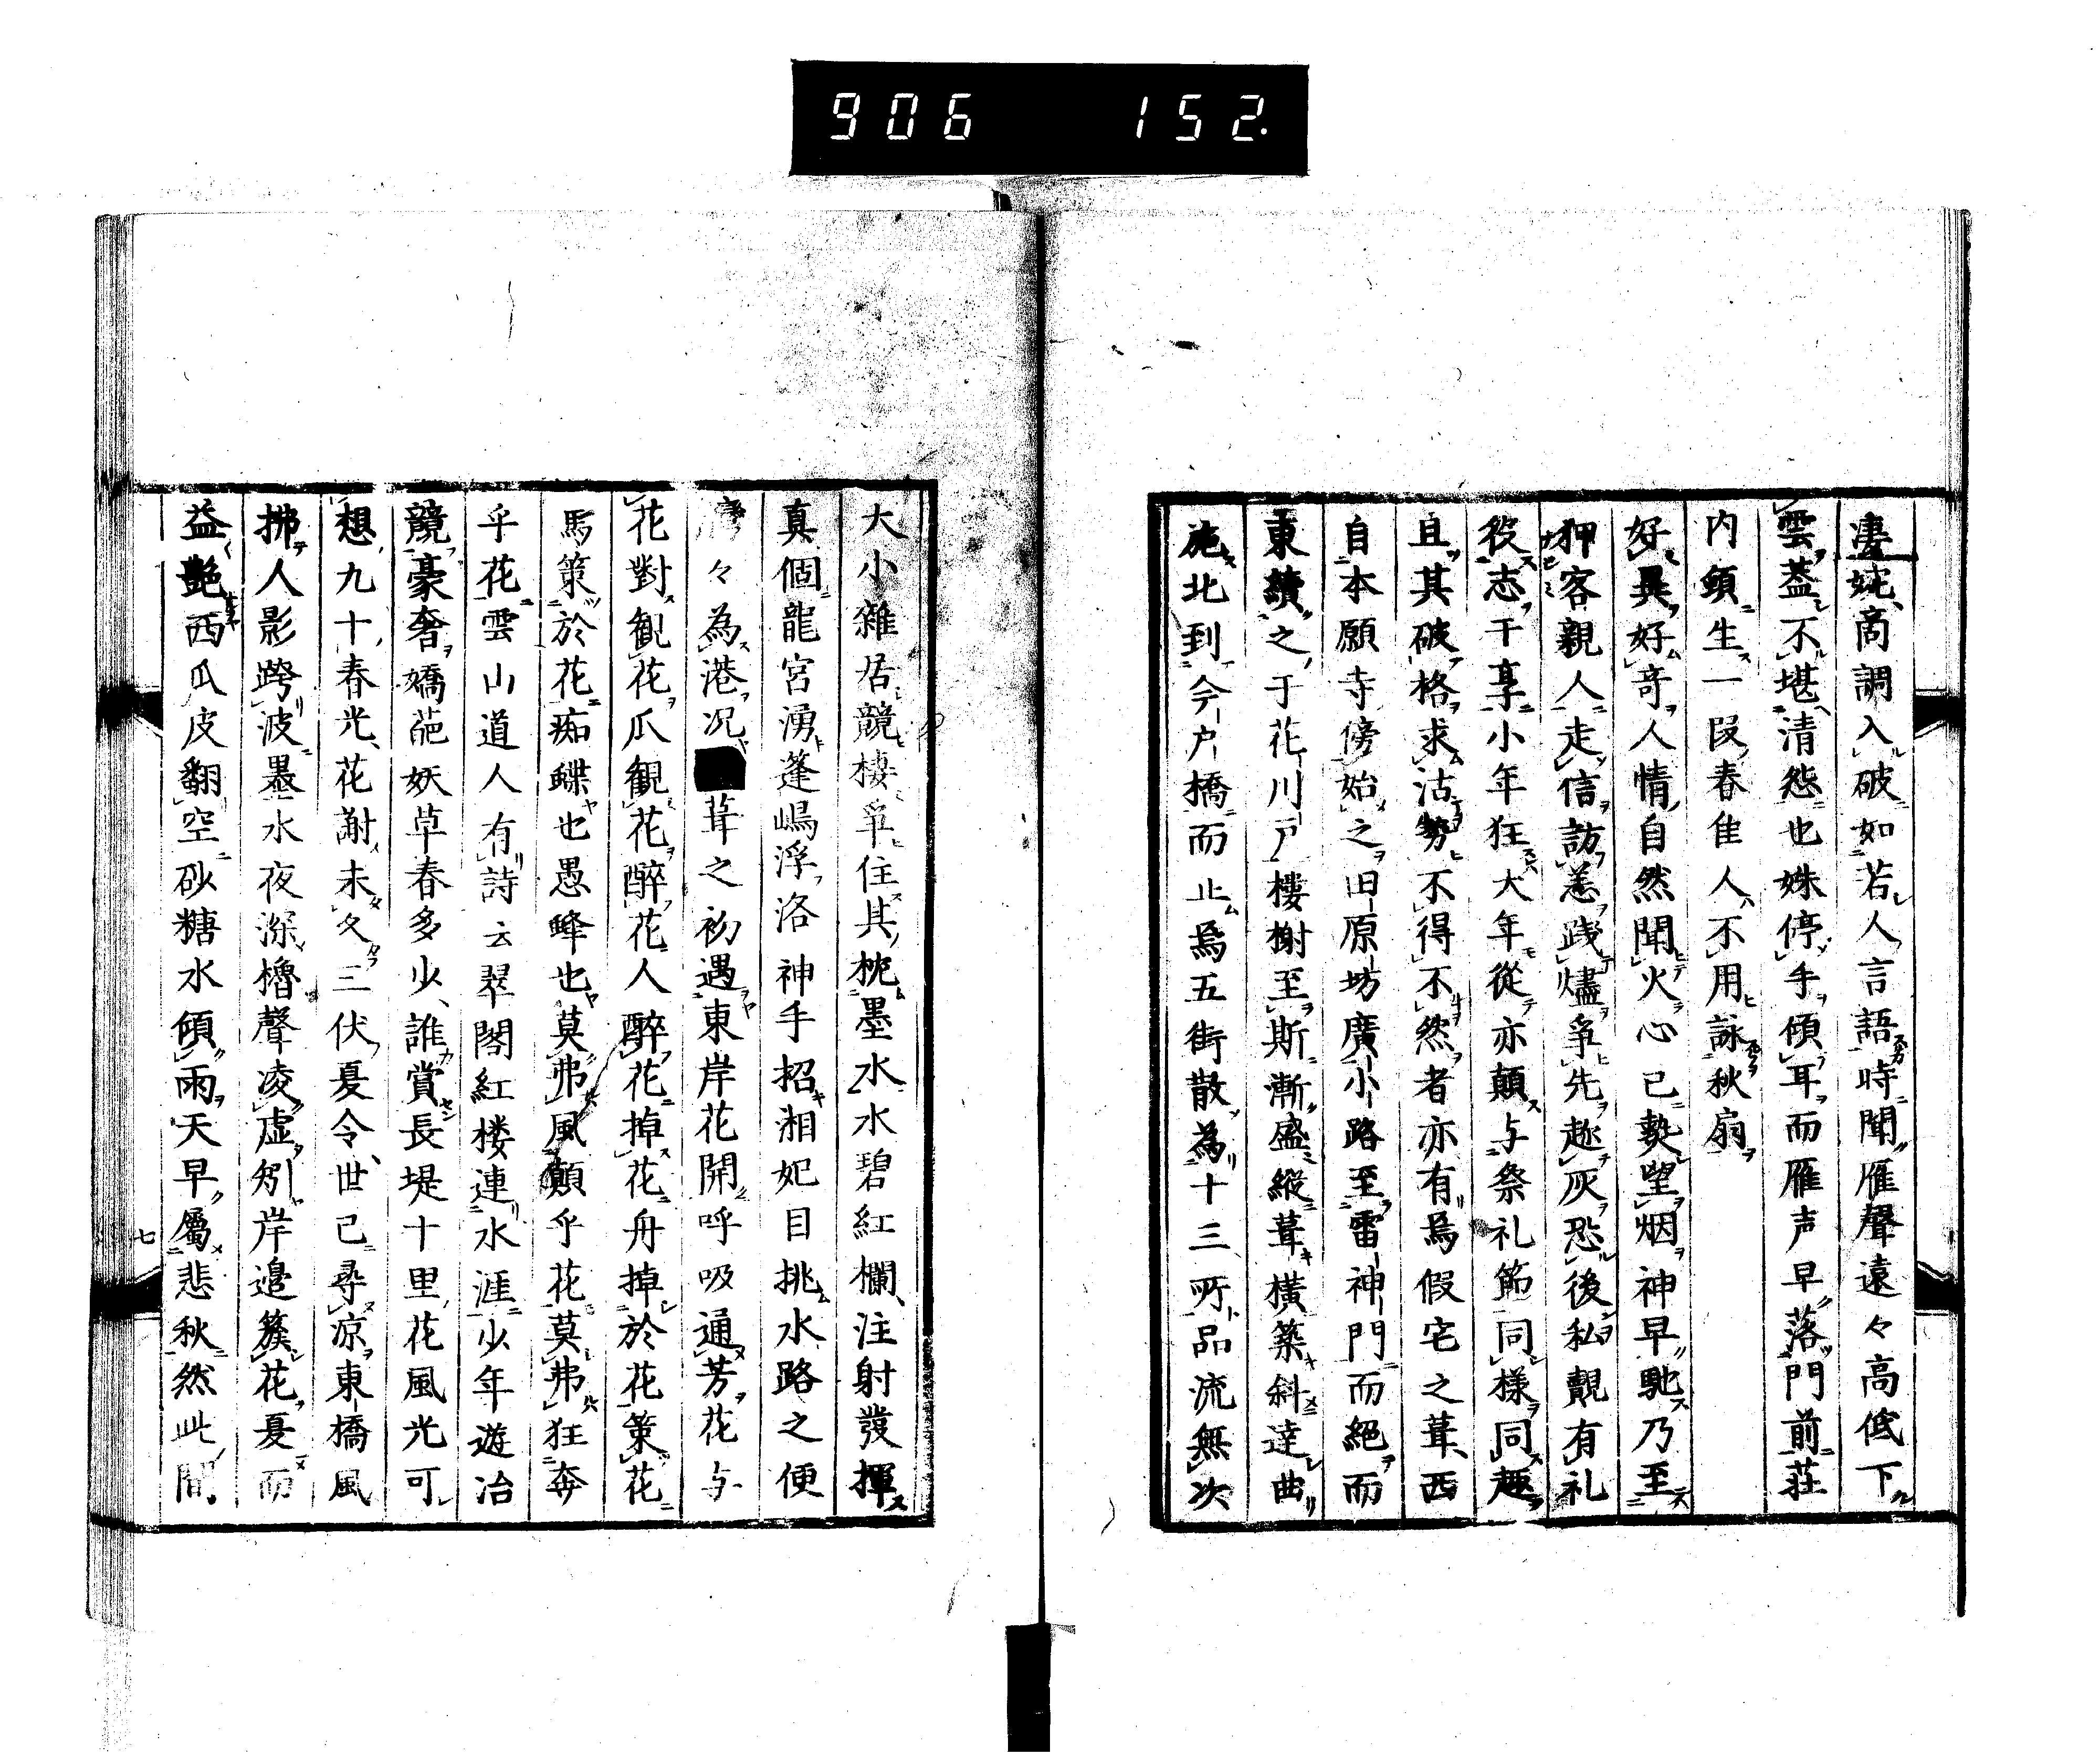 906 152
凄婉商調入破如若人言語時聞雁聲遠々高低下
雲益不堪清怨也姝停手傾耳而雁声早落門前荘
内頭生一段春隹人不用詠秋扇
好異好奇人情自然聞火心已熱望烟神早馳乃至
狎客親人走信訪恙践燼爭先趂灰恐後私覿有礼
役志于享小年狂大年從亦顛与祭礼節同樣同趣
且其破格求沽勢不得不然者亦有焉假宅之葺西
自本願寺傍始之田原坊廣小路至雷神門而絕而
東續之于花川戸樓榭至斯漸盛縱葺橫築斜達曲
施北到今戸橋而止焉五街散為十三所品流無次
大小雜居競棲爭住其枕墨水水碧紅欄注射發揮
真個龍宮湧蓬嶋浮洛神手招湘妃目挑水路之便
々為港况葺之初遇東岸花開呼吸通芳花与
花對観花瓜観花醉花人醉花掉花舟掉於花策花
馬策於花痴蝶也愚蜂也莫弗風顛乎花莫弗狂奔
乎花雲山道人有詩云翠閣紅楼連水涯少年遊冶
競豪奢嬌葩妖草春多少誰賞長堤十里花風光可
想九十春光花謝未久三伏夏令世已尋凉東橋風
拂人影跨波墨水夜深櫓聲凌虛矧岸邉簇花夏而
益艶西瓜皮翻空砂糖水傾雨天早屬悲秋然此間
七